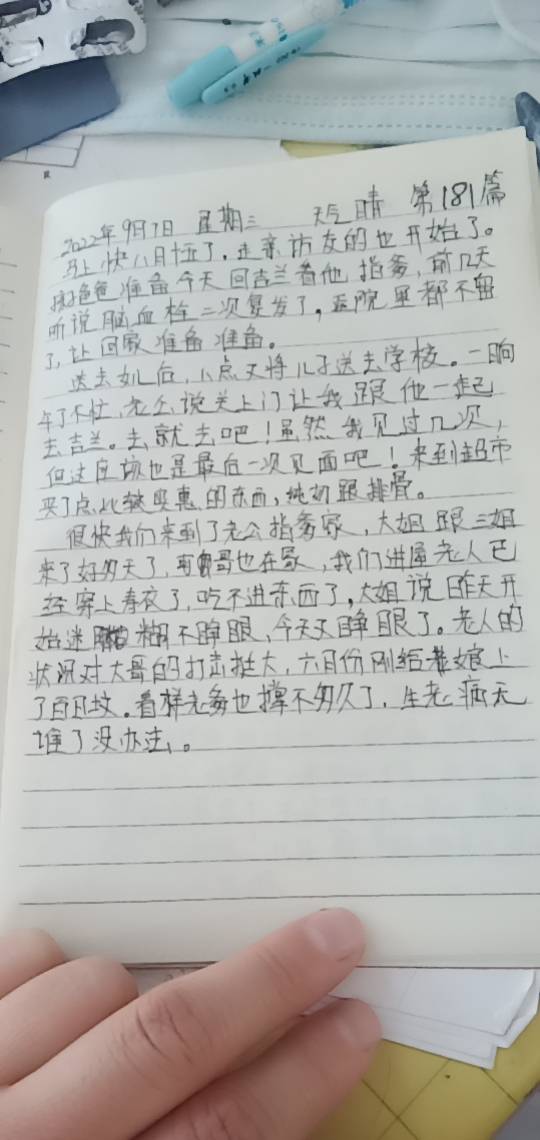 2022年9月7日 星期三 天气晴 第181篇
马上快八月十五了。走亲访友的也开始了。
爸爸准备今天回吉兰看他指爹,前几天
听说脑血栓二次复发了,医院里都不留
了,让回家准备准备。
送去幼儿后,八点又将儿子送去学校。一晌
午了不忙,老公说关上门让我跟他一起
去吉兰。去就去吧!虽然我见过几次,
但这应该也是最后一次见面吧!来到超市
买了点比较实惠的东西,纯奶跟排骨。
很快我们来到了老公指爹家,大姐跟三姐
来了好多天了,哥也在家,我们进屋老人已
经穿上寿衣了,吃不进东西了,大姐说昨天开
始迷糊不睁眼,今天又睁眼了。老人的
状况对大哥的打击挺大,六月份刚给老娘上
了百日坟。看样老爹也撑不多久了,生老病死
谁了没办法。